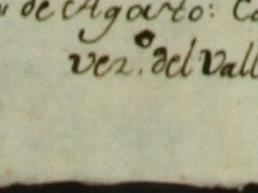 de Agosto: Co
vez.º del Vall